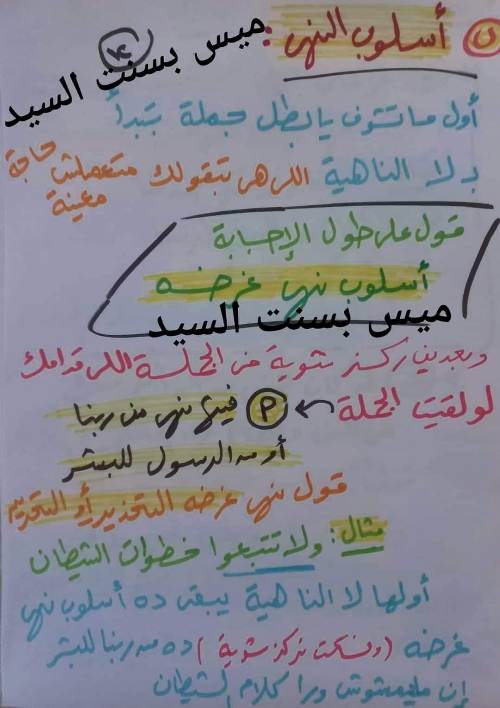 أسلوب النهى:
ميس بسنت السيد
أول ما تشوف يا بطل جملة تبدأ
بـ لا الناهية اللى هى بتقولك متعملش حاجة
معينة
قول على طول الإجابة
أسلوب نهى غرضه
ميس بسنت السيد
وبعدين ركز شوية فى الجملة اللى قدامك
لو لقيت الجملة ← فيها نهى من ربنا
أو من الرسول للبشر
قول نهى غرضه التحذير أو التحريم
مثال: ولا تتبعوا خطوات الشيطان
أولها لا الناهية يبقى ده أسلوب نهى
غرضه (ونسكت نركز شوية) ده من ربنا للبشر
إن ميمشوش ورا كلام الشيطان